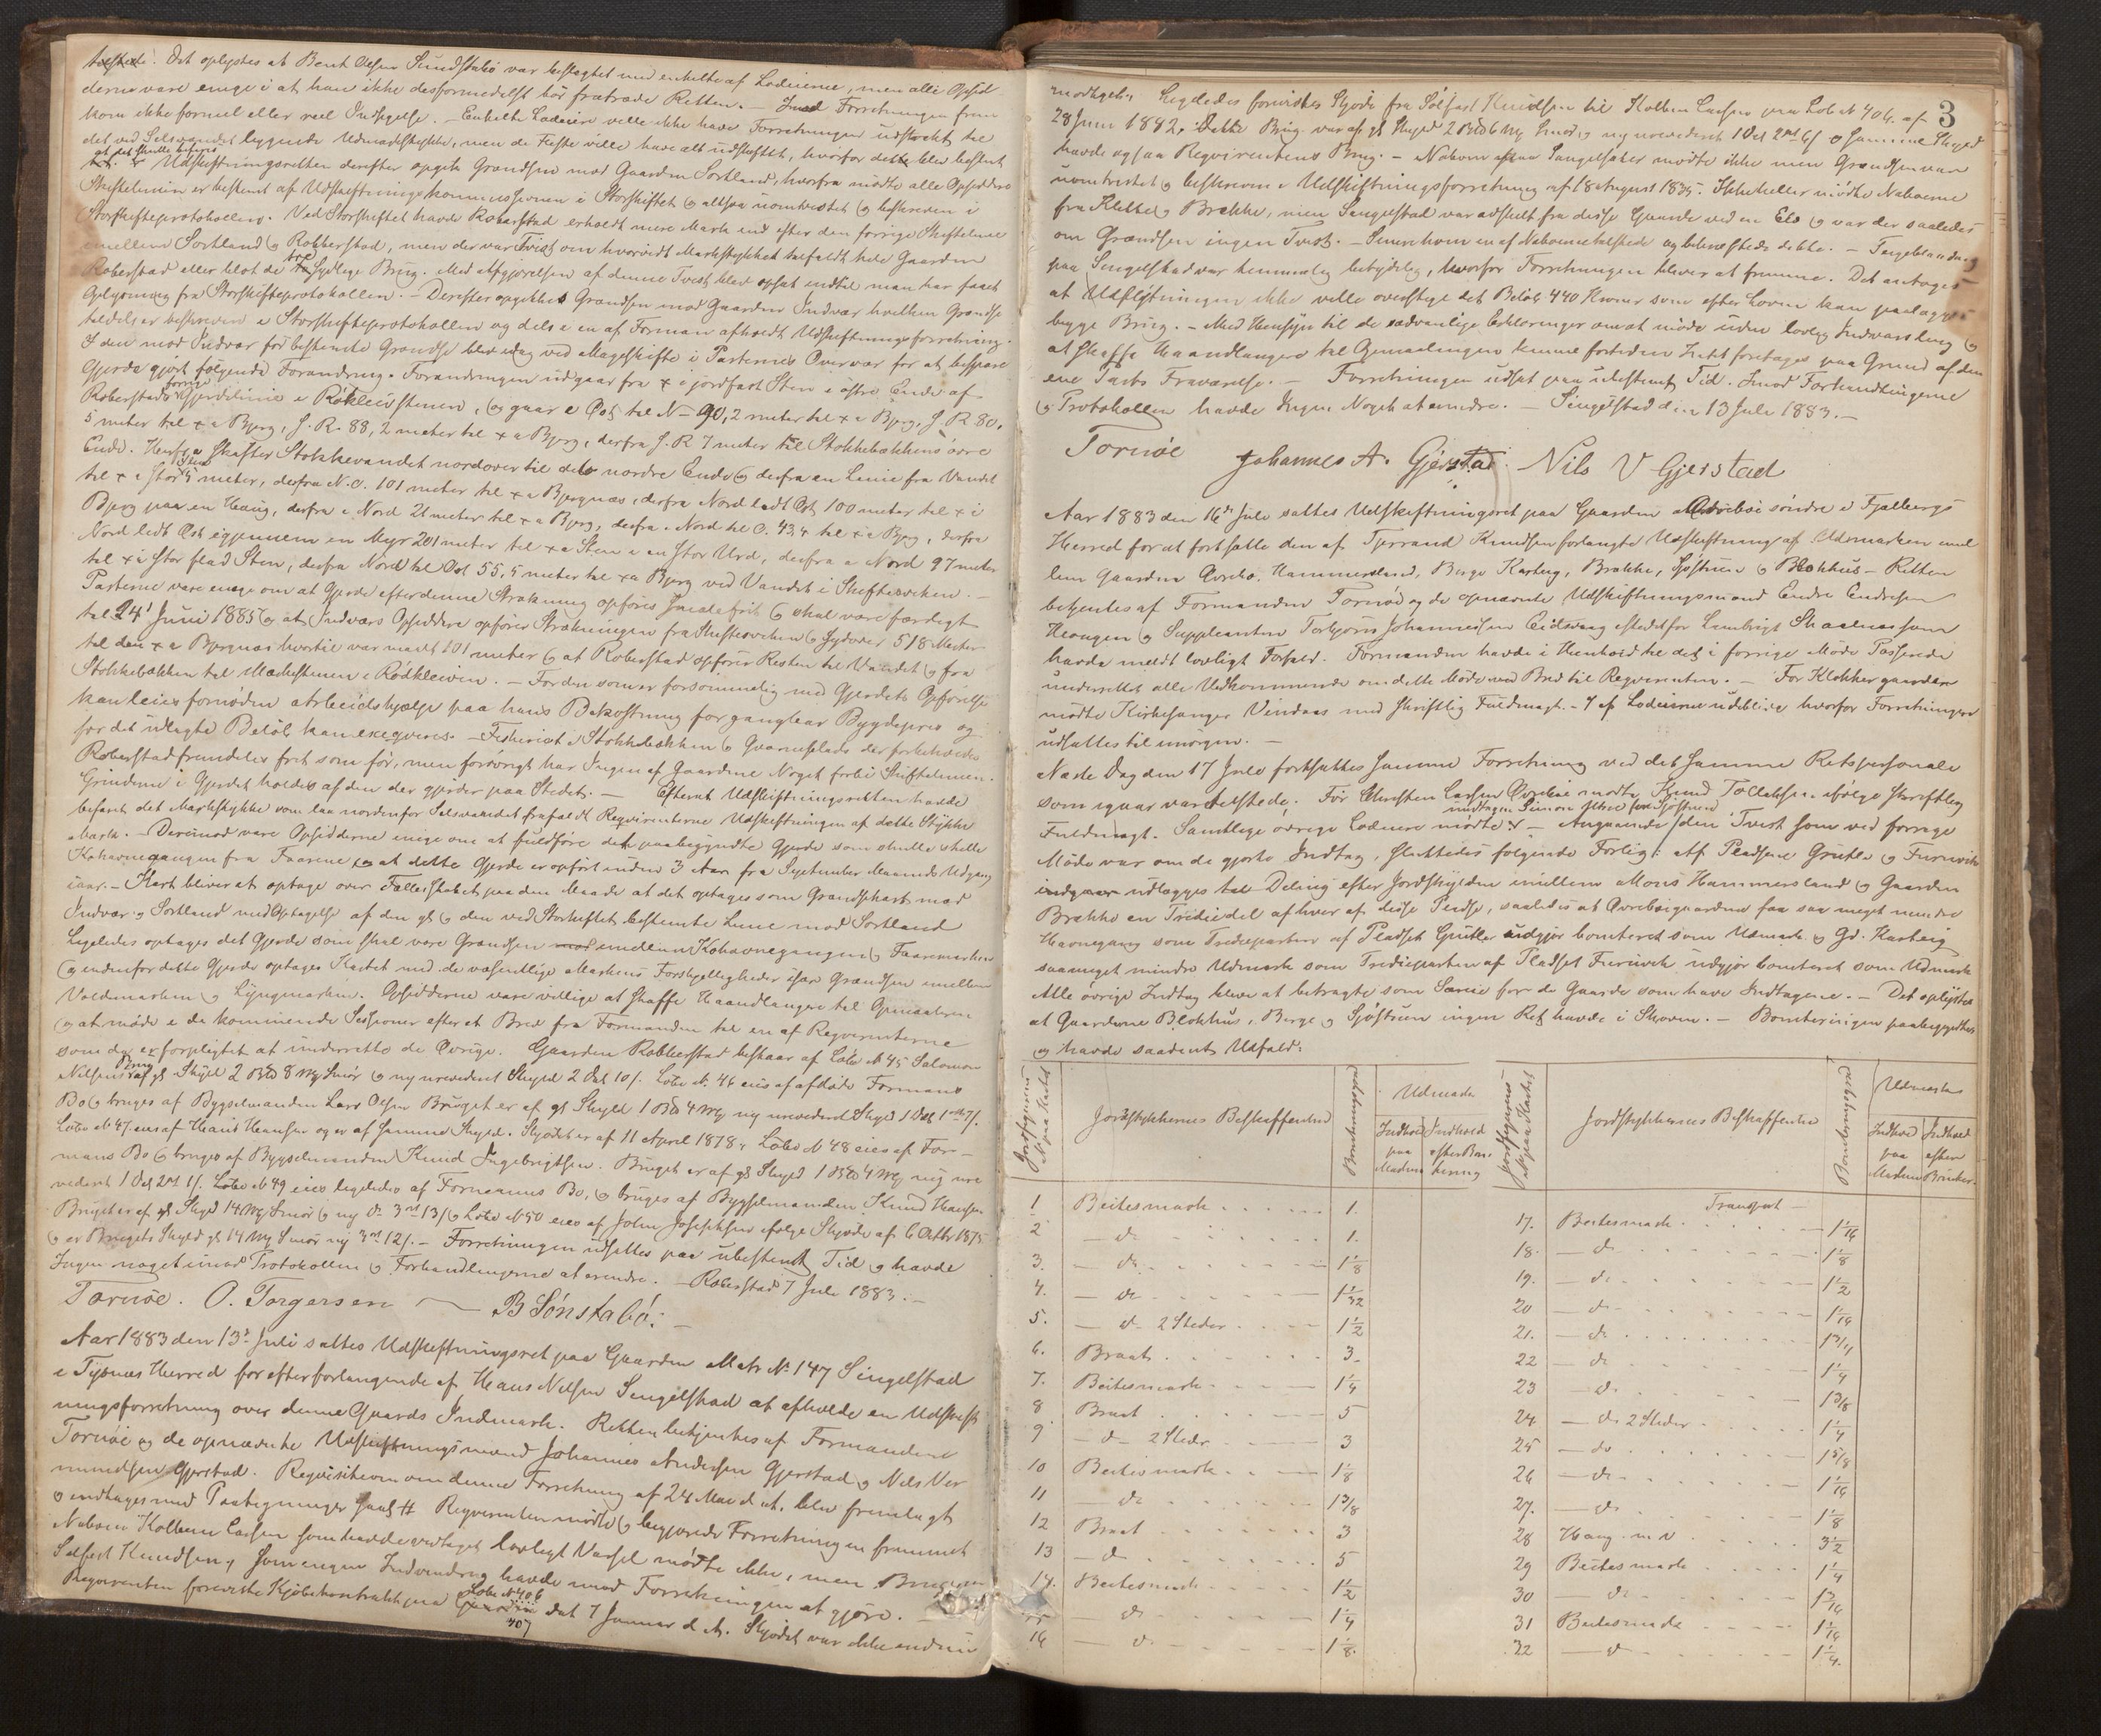 Det oplystes at Bent Olsen Sundstabø var beslægtet med enkelte af Lodeierne, men alle Opsid
derne vare enige i at han ikke desformedelst bør fratræde Retten. – Imod Forretningen frem
kom ikke formel eller reel Indsigelse. – Enkelte Lodeiere ville ikke have Forretningen udstrakt til
det ved Selsvandet liggende Udmarkstykke, men de Fleste ville have alt udskiftet, hvorfor dette blev bestemt
at det skulle
Udskiftningsretten derefter opgik Grændsen mod Gaarden Sortland, hvorfra mødte alle Opsiddere
Skiftelinien er bestemt af Udskiftningskommissionen i Storskiftet og altsaa uomtvistet og beskreven i
Storskifteprotokollen. Ved Storskiftet havde Roberstad erholdt mere Mark end efter den forrige Skiftelinie
mellem Sortland og Robberstad, men der var Tvist om hvorvidt Markstykket tilfaldt hele Gaarden
Roberstad eller blot de tre Sydlige Brug. Med Afgjørelsen af denne Tvist blev opsat indtil man har faaet
Oplysning fra Storskifteprotokollen. – Derefter opgikkes Grændsen mod Gaarden Indvær hvilken Grændse
tildels er beskreven i Storskifteprotokollen og dels i en af Forman afholdt Udskiftningsforretning.
I den mod Indvær før bestemte Grændse blev idag ved Mageskifte i Parternes Overvær for at bespare
Gjerde gjort følgende Forandring. Forandringen udgaar fra x i jordfast Sten i østre Ende af
forrige
Roberstads Gjerdelinie i Røkleivstenen, og gaar i Øst til N – 90,2 meter til x i Bjerg, S. R. 80,
5 meter til x i Bjerg, S. R. 88,2 meter til x i Bjerg, derfra S. R 7 meter til Stokkebækkens øvre
Ende. Herfra skifter Stokkevandet nordover til dets nordre Ende og derfra en Linie fra Vandet
til x i stor Sten 4 meter, derfra N. O. 101 meter til x i Bjergnæs, derfra Nord ledt Øst 100 meter til x i
Bjerg paa en Haug, derfra i Nord 21 meter til x i Bjerg, derfra i Nord til O. 43,4 til x i Bjerg, derfra
Nord ledt Øst igjennem en Myr 201 meter til x i Sten i en stor Urd, derfra i Nord 97 meter
til x i stor flad Sten, derfra Nord til Øst 55,5 meter til x i Bjerg ved Vandet i Skiftesviken. –
Parterne vare enige om at Gjerde efter denne Strækning opføres Smalefrit og skal være færdigt
til 24' Juni 1885 og at Indværs Opsiddere opfører Strækningen fra Skiftesviken og sydover 518 Meter
til den x i Bjergnæs hvortil var maalt 101 meter og at Roberstad opfører Resten til Vandet og fra
Stokkebækken til Mærkestenen i Rødkleiven. – For den som er forsømmelig med Gjerdets Opførelse
kan leies fornøden Arbeidshjælp paa hans Bekostning for gangbar Bygdepris og
for det udlagte Beløb kan exeqveres. – Fiskeriet i Stokkebækken og Qværneplads der forbeholdes
Roberstad fremdeles fri som før, men forøvrigt har Ingen af Gaardene Noget forbi Skiftelinien.
Grinderne i Gjerdet holdes af den der gjerder paa Stedet. – Efterat Udskiftningsretten havde
befaret det Markstykke som laa nordenfor Selsvandet frafaldt Reqvirenterne Udskiftningen af dette Stykke
mark. – Derimod vare Opsidderne enige om at fuldføre det paabegyndte Gjerde som skulle skille
Kohavnegangen fra Faarene og at dette Gjerde er opført inden 3 Aar fra September Maaneds Udgang
iaar. – Kart bliver at optage over Fællesskabet paa den Maade at det optages som Grændsekart mod
Indvær og Sortland med Optagelse af den gl og den ved Storskiftet bestemte Linie mod Sortland
Ligeledes optages det Gjerde som skal være Grændsen mellem Kohavnegangen og Faaremarken
og indenfor dette Gjerde optages Kartet med de væsentlige Markens Forskjelligheder især Grændsen mellem
Voldemarken og Lyngmarken. Opsidderne vare villige at skaffe Haandlangere til Opmaalingen
og at møde i de kommende Sessioner efter et Bud fra Formanden til en af Reqvirenterne
som da er forpligtet at underrette de Øvrige. Gaarden Robberstad bestaar af Løbe N 45 Salomon
Nilsens Brug af gl Skyld 2 Bpd 8 Mrk Smør og ny urevideret Skyld 2 Dal 10 s. Løbe N. 46 eies af afdøde Formans
Bo og bruges af Bygselmanden Lars Olsen Bruget er af gl Skyld 1 Bpd 4 Mrk ny urevideret Skyld 1 Dal 1 ort 7 s.
Løbe N 47 eies af Hans Hansen og er af samme Skyld. Skjødet er af 11 April 1878, Løbe N 48 eies af For-
mans Bo og bruges af Bygselmanden Knud Ingebrigtsen. Bruget er af gl Skyld 1 Bpd 4 Mrk ny ure
videret 1 Dal 2 ort 1 s. Løbe N 49 eies ligeledes af Formanns Bo, og bruges af Bygselmanden Knud Hansen
Bruget er af gl Skyld 14 Mrk Smør og ny do 3 ort 13 s og Løbe N 50 eies af John Josephsen ifølge Skjøde af 6 Octbr 1875
og er Brugets Skyld gl 14 Mrk Smør ny 3 ort 12 s. – Forretningen udsattes paa ubestemt Tid og havde
Ingen noget imod Protokollen og Forhandlingerne at erindre. – Roberstad 7 Juli 1883. –
Tornøe. O. Torgersen – B Sønstabø.
Aar 1883 den 13de Juli sattes Udskiftningsret paa Gaarden Matr No 147 Singelstad
i Tysnæs Herred for efter forlangende af Hans Nilsen Singelstad at afholde en Udskift
ningsforretning over denne Gaards Indmark. Retten betjentes af Formanden
Tornøe og de opnævnte Udskiftningsmænd Johannes Andersen Gjerstad og Nils Ver
mundsen Gjerstad. Reqvisitionen om denne Forretning af 24 Mai d. A. blev fremlagt
og indtages med Paategninger saal # Reqvirenten mødte og begjærede Forretningen fremmet
Naboen Kolbein Larsen som havde vedtaget lovligt Varsel mødte ikke, men Brugeren
Sølfest Knudsen, som ingen Indvending havde mod Forretningen at gjøre. –
Løbe N 406
Reqvirenten foreviste Kjøbekontrakt paa dat 7 Januar d. A. Skjødet var ikke endnu
407
3
modtaget. Ligeledes forevistes Skjøde fra Sølfest Knudsen til Kolben Larsen paa Løb N 406. af
28 Juni 1882. Dette Brug var af gl Skyld 2 Bpd 6 Mrk Smør, og ny urevideret 1 Dal 2 ort 6 s og samme Skyld
havde ogsaa Reqvirentens Brug. – Naboen af Singelsaker mødte ikke men Grændsen var
uomtvistet og beskreven i Udskiftningsforretning af 18 August 1835. Ikke heller mødte Naboerne
fra Klette og Brekke, men Singelstad var adskilt fra disse Gaarde ved en Elv og var der saaledes
om Grændsen ingen Tvist. – Senere kom en af Naboerne tilstede og bekræftede dette. – Teigeblanding
paa Singelstad var temmelig betydelig, hvorfor Forretningen bliver at fremme. Det antages
at Udflytningen ikke ville overstige det Beløb 440 Kroner som efter Loven kan paalægges
begge Brug. – Med Hensyn til de sædvanlige Erklæringer om at møde uden lovlig Indvarsling og
at skaffe Haandlangere til Opmaalingen kunne fortiden Intet foretages paa Grund af den
ene Parts Fraværelse. – Forretningen udsat paa ubestemt Tid. Imod Forhandlingerne
og Protokollen havde Ingen Noget at erindre. – Singelstad den 13 Juli 1883. –
Tornøe Johannes A. Gjerstad Nils V Gjerstad
Aar 1883 den 16de Juli sattes Udskiftningsret paa Gaarden Øvrebø søndre i Fjelbergs
Herred for at fortsætte den af Tjerrand Knudsen forlangte Udskiftning af Udmarken mel
lem Gaarden Øvrebø, Hammersland, Berge Karteig, Brekke, Sjøstrun og Blokhus – Retten
betjentes af Formanden Tornøe og de opnævnte Udskiftningsmænd Endre Endresen
Heougen og Suppleanten Torbjørn Johannessen Eidsvaag istedetfor Lambrigt Skaalnes som
havde meldt lovligt Forfald. Formanden havde i Henhold til det i forrige Møde Passerede
underrettet alle Vedkommende om dette Møde ved Bud til Reqvirenten. – For Klokkergaarden
mødte Kirkesanger Vindaas med skriftlig Fuldmagt. – 7 af Lodeierne udebleve hvorfor Forretningen
udsattes til imorgen. –
Næste Dag den 17 Juli fortsattes samme Forretning ved det samme Retspersonale
som igaar var tilstede. For Christen Larsen Øvrebø mødte Knud Tollaksen ifølge skriftlig
undtagen Simon Olsen for Sjøstrun
Fuldmagt. Samtlige øvrige Lodeiere mødte – Angaaende den Tvist som ved forrige
Møde var om de gjorte Indtag, sluttedes følgende Forlig: Af Pladsene Grutle og Furuvik
udlægges til Deling efter Jordskylden imellem Mons Hammersland og Gaarden
Brekke en Trediedel af hver af disse Pladse, saaledes at Øvrebøgaarden faa saa meget mindre
Havnegang som Trediepartene af Pladset Grutle udgjør boniteret som Udmark og Gd. Karteig
saameget mindre Udmark som Trediepart af Pladset Furuvik udgjør boniteret som Udmark
Alle øvrige Indtag bliver at betragte som Særeie for de Gaarde som have Indtagene. – Det oplystes
at Gaardene Blokhus, Berge og Sjøstrun ingen Ret havde i Skoven. – Boniteringen paabegyndtes
og havde saadant Udfald:
Jordfigurens N paa Kartet | Jordstykkernes Beskaffenhed | Boniteringsgrad | Udmark | Indhold paa Marken | Indhold efter Bonitering | Jordfigurens N paa Kartet | Jordstykkernes Beskaffenhed | Boniteringsgrad | Udmark | Indhold paa Marken | Indhold efter Boniter.
Transport –
1 Beitesmark 1. 17. Beitesmark 1 1/16
2 – do 1. 18. – do 1 1/8
3. – do 1 1/8 19. – do 1 1/2
4. – do 1 1/32 20 – do 1 1/16
5. – do 2 Steder 1 1/2 21. – do 1 3/4
6. Braat 3 22 – do 1 1/4
7. Beitesmark 1 1/4 23 – do 1 3/8
8 Braat 5 24 – do 2 Steder 1 1/4
9 – do 2 Steder 3 25 – do 1 5/8
10 Beitesmark 1 1/8 26 – do 1 1/16
11 do 1 3/8 27. – do 1 1/8
12 Braat 3 28 Haug 3 1/2
13 – do 5 29 Beitesmark 1 1/4
14. Beitesmark 1 1/2 30 – do 1 3/16
15 – do 1 1/4 31 Beitesmark 1 1/16
16 – do 1 1/8. 32 – do 1 1/4.